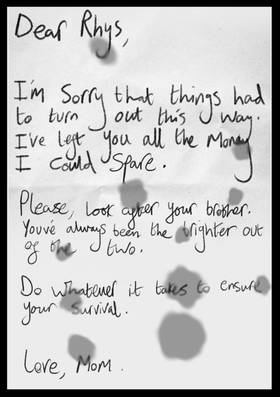 Dear Rhys,
I'm Sorry that things had
to turn out this way.
I've left you all the Money
I could Spare.
Please, look after your brother.
Youve always been the brighter out
of the two.
Do whatever it takes to ensure
your survival.
Love, Mom.